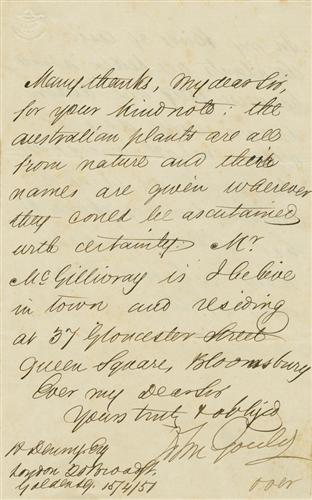 Many thanks, my dear Sir,
for your kind note: the
australian plants are all
from nature and their
names are given wherever
they could be ascertained
with certainty. Mr
McGillivray is I believe
in town and residing
at 37 Gloucester Street
Queen Square, Bloomsbury
Ever my dear Sir
Yours truly & obligd
John Gould
H Denny Esq
London 20 Broad St
Golden Sq. 15/4/51
over